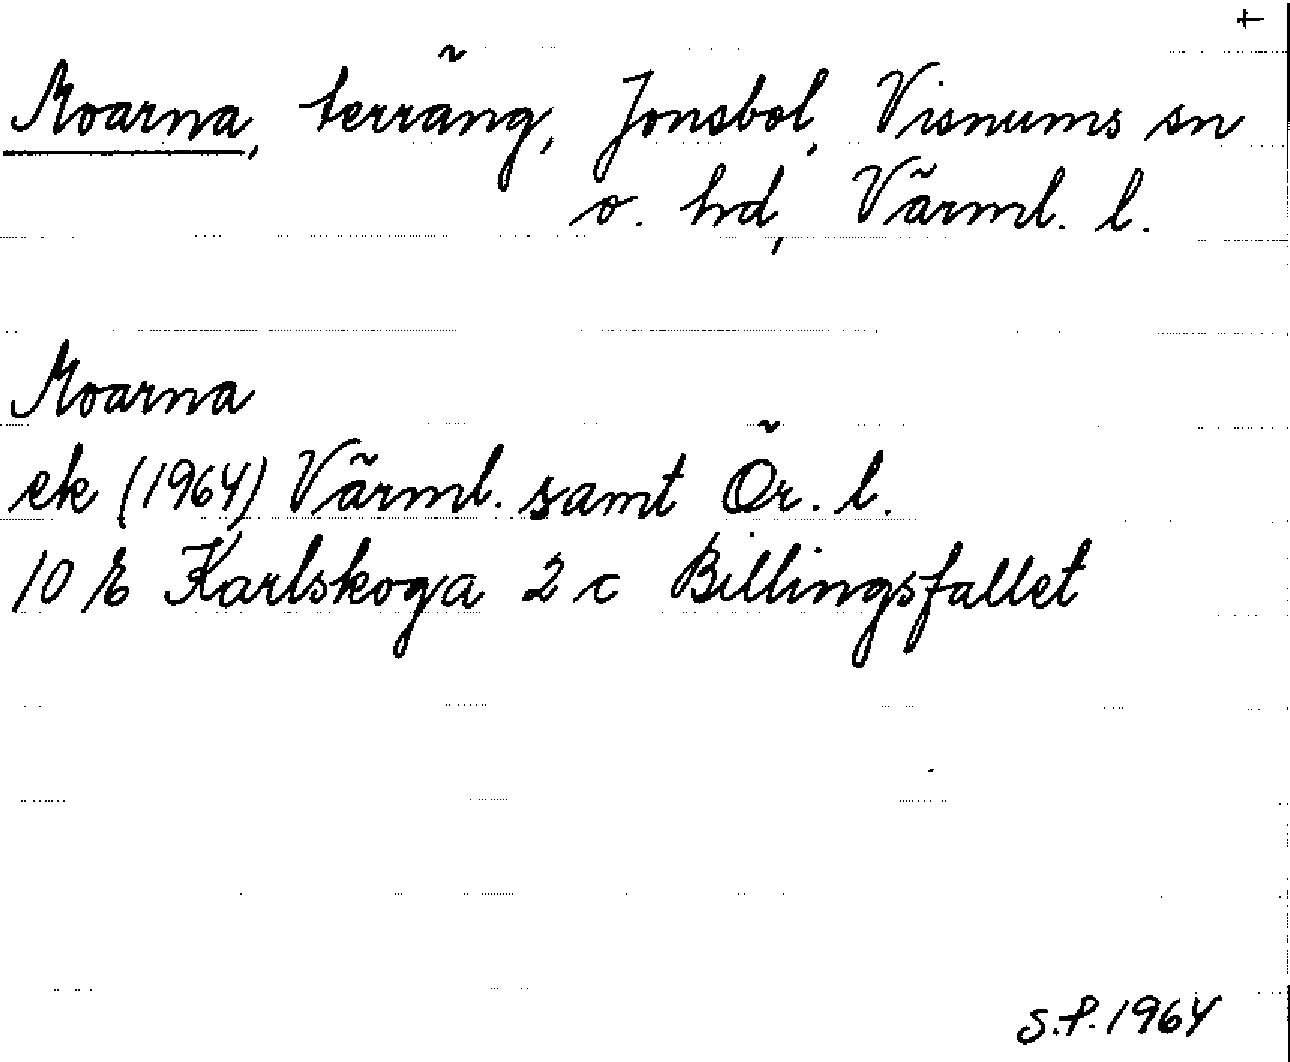 Moarna, terräng, Jonsbol, Visnums sn
o. hd, Värml. l.
Moarna
ek (1964) Värml. samt Ör. l.
10 E Karlskoga 2 c Billingsfallet
S.P. 1964